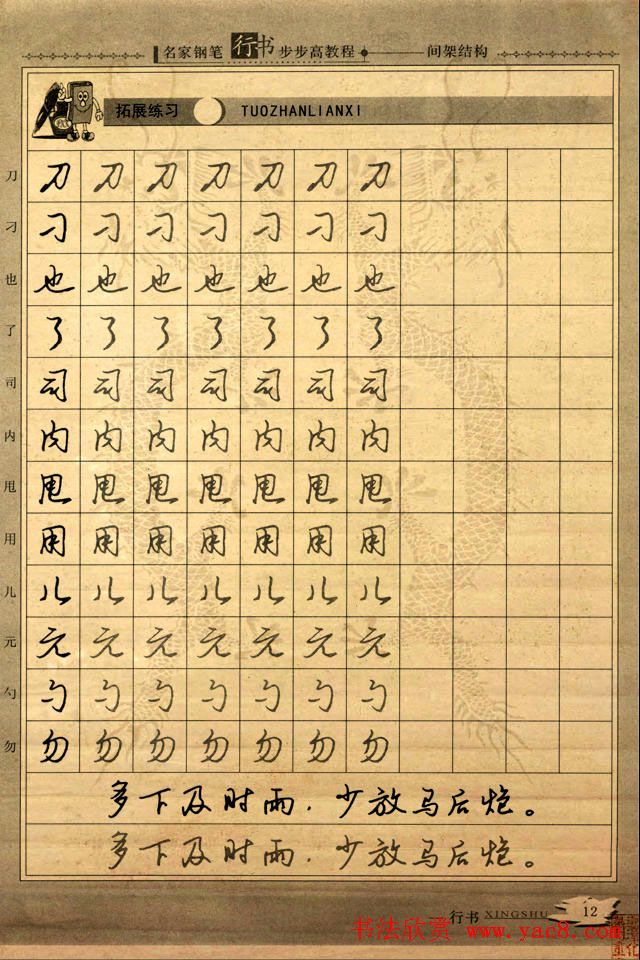 名家钢笔行书步步高教程 间架结构
拓展练习 TUOZHANLIANXI
刀 刀 刀 刀 刀 刀 刀 刀
刁 刁 刁 刁 刁 刁 刁 刁
也 也 也 也 也 也 也 也
了 了 了 了 了 了 了 了
司 司 司 司 司 司 司 司
内 内 内 内 内 内 内 内
甩 甩 甩 甩 甩 甩 甩 甩
用 用 用 用 用 用 用 用
儿 儿 儿 儿 儿 儿 儿 儿
元 元 元 元 元 元 元 元
勺 勺 勺 勺 勺 勺 勺 勺
勿 勿 勿 勿 勿 勿 勿 勿
多下及时雨，少放马后炮。
多下及时雨，少放马后炮。
行书 XINGSHU 12
书法欣赏 www.yac8.com